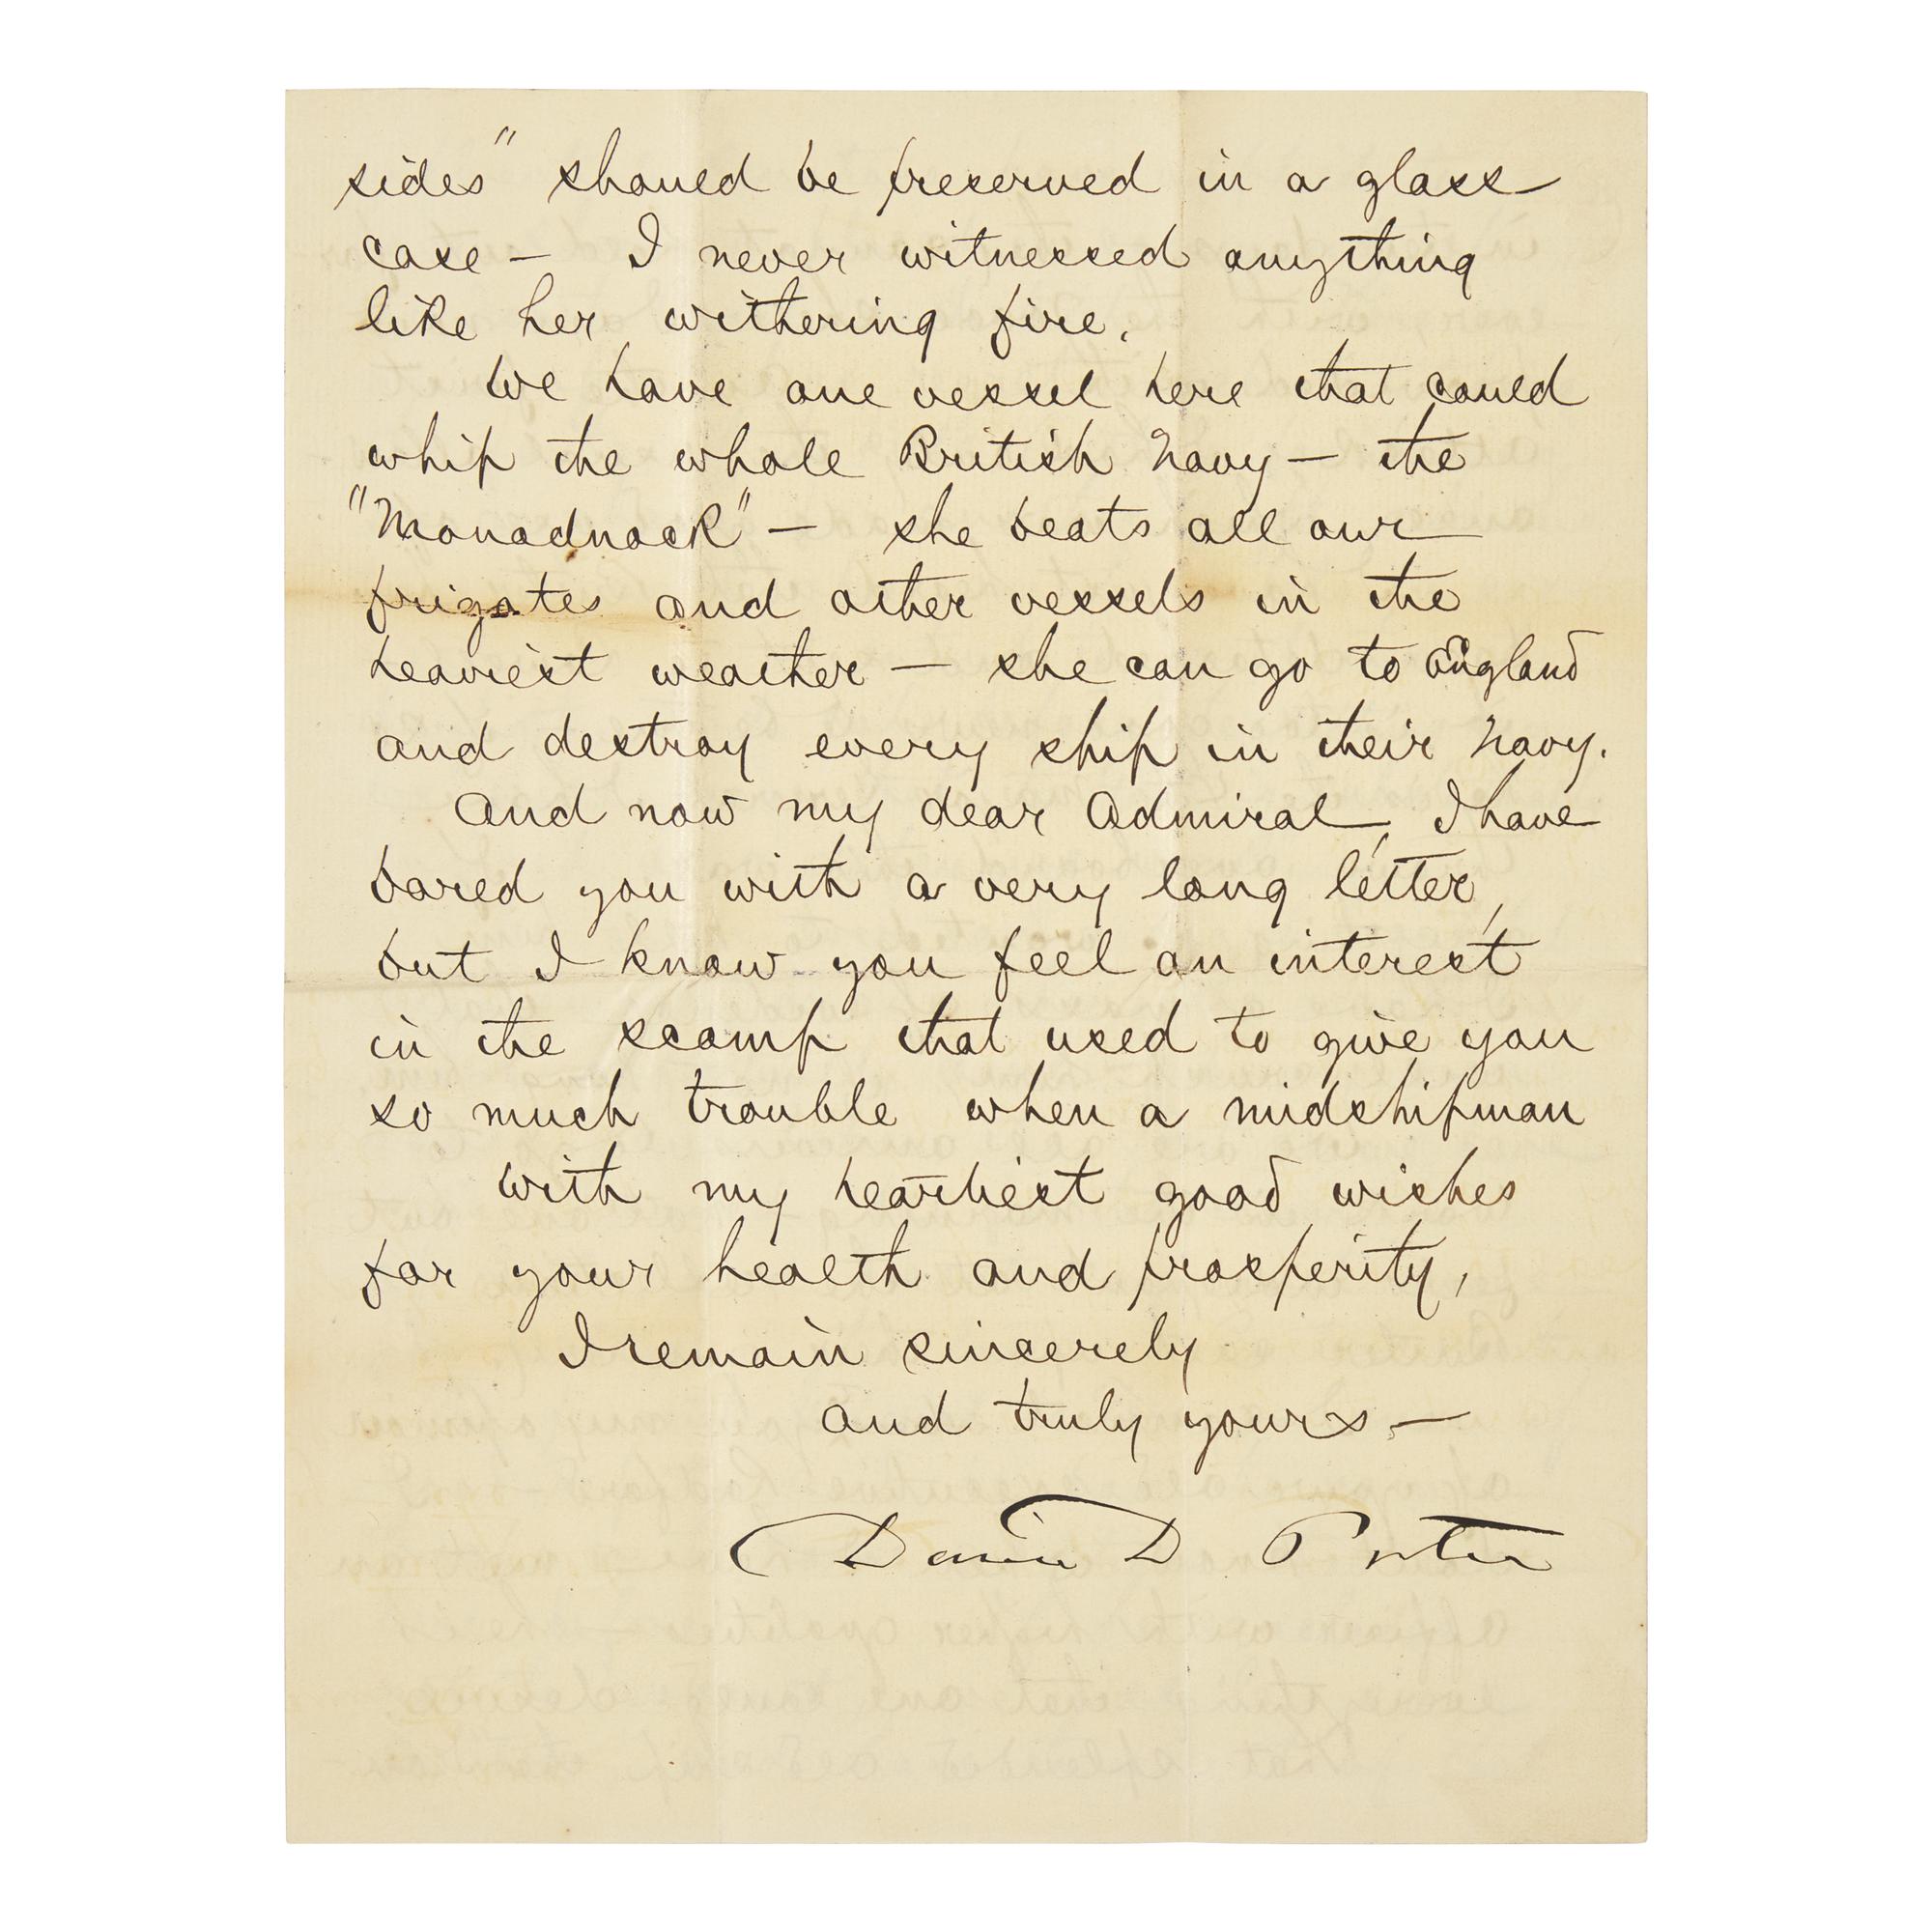 sides" should be preserved in a glass
case – I never witnessed anything
like her withering fire.
We have one vessel here that could
whip the whole British Navy – the
"Monadnock" – she beats all our
frigates and other vessels in the
heaviest weather – she can go to England
and destroy every ship in their Navy.
And now my dear Admiral, I have
bored you with a very long letter,
but I know you feel an interest
in the scamp that used to give you
so much trouble when a midshipman
With my heartiest good wishes
for your health and prosperity,
I remain sincerely
and truly yours –
David D Porter